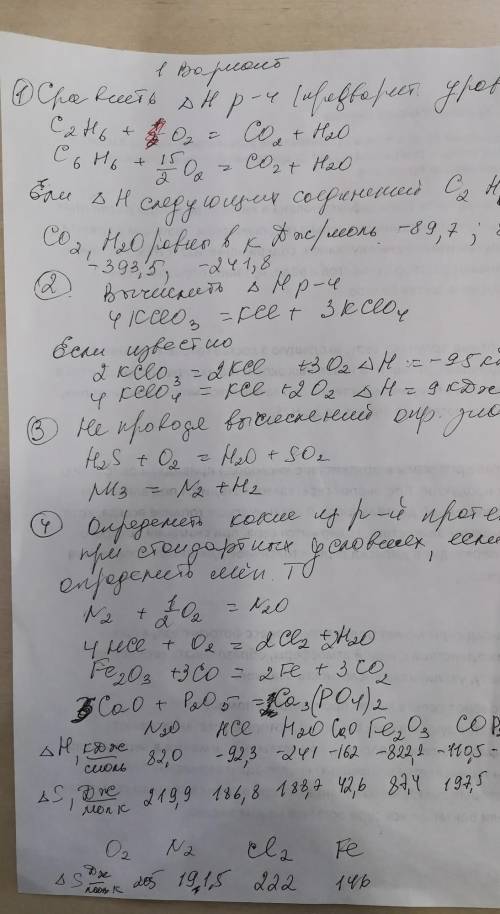 1 Вариант
① Сравнить ΔH р-ч (предварит. урав
C₂H₆ + O₂ = CO₂ + H₂O
C₆H₆ + 15/2 O₂ = CO₂ + H₂O
Если ΔH следующих соединений C₂H
CO₂, H₂O равны в кДж/моль -89,7;
-393,5, -241,8
② Вычислить ΔH р-ч
4KClO₃ = KCl + 3KClO₄
Если известно
2KClO₃ = 2KCl + 3O₂ ΔH = -95 к
4KClO₄ = KCl + 2O₂ ΔH = 9 кДж
③ Не проводя вычислений опр. зна
H₂S + O₂ = H₂O + SO₂
NH₃ = N₂ + H₂
④ Определить какие из р-й проте
при стандартных условиях, если
определить мен. T
N₂ + 1/2 O₂ = N₂O
4HCl + O₂ = 2Cl₂ + 2H₂O
Fe₂O₃ + 3CO = 2Fe + 3CO₂
CaO + P₂O₅ = Ca₃(PO₄)₂
N₂O HCl H₂O CaO Fe₂O₃ CO P
ΔH, кДж/моль 82,0 -92,3 -241 -162 -822,2 -110,5 -
ΔS, Дж/мол К 219,9 186,8 188,7 42,6 87,4 197,5
O₂ N₂ Cl₂ Fe
ΔS Дж/мол К 205 191,5 222 146